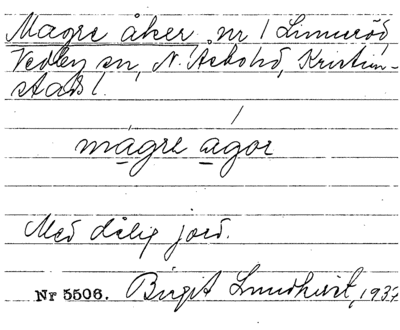 Magre åker nr 1 Limeröd
Vedby sn, N. Åsbohd, Kristian-
stads l.
magre ågor
Med dålig jord.
Nr 5506. Birgit Lundkvist, 1937